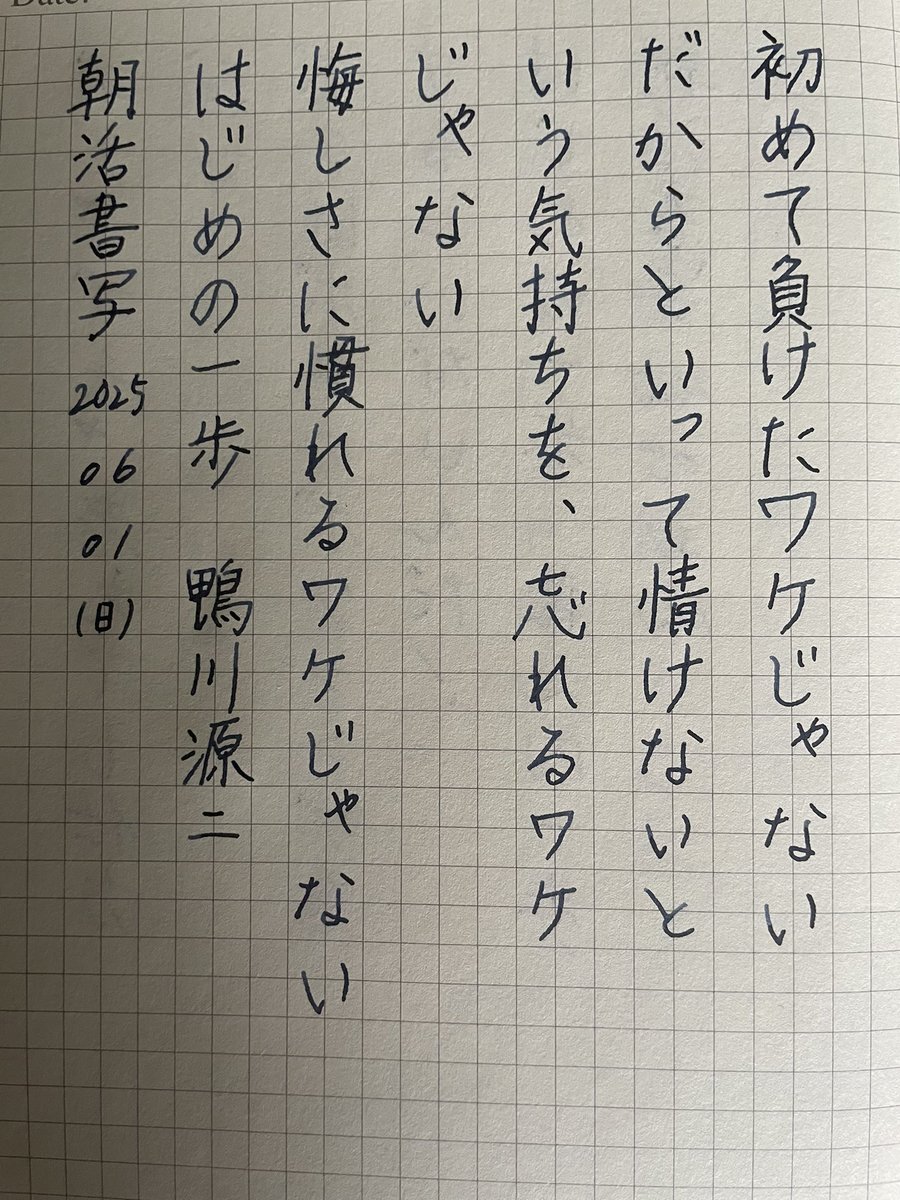 Date:
初めて負けたワケじゃない
だからといって情けないと
いう気持ちを、忘れるワケ
じゃない
悔しさに慣れるワケじゃない
はじめの一歩 鴨川源二
朝活書写 2025 06 01 (日)